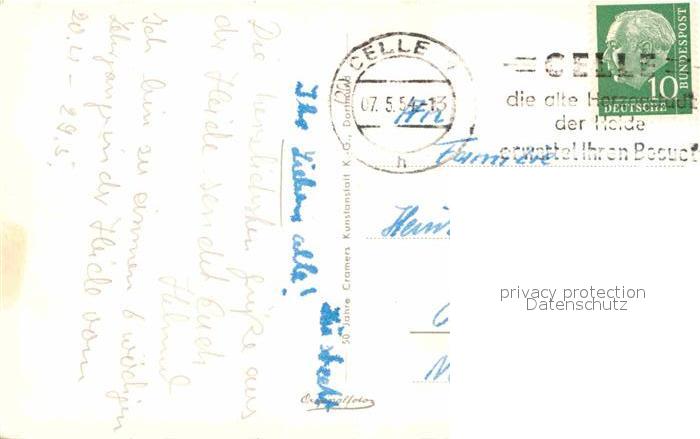 Ihr Lieben alle!
Die herzlichsten Grüße aus
der Heide sendet Euch
Helmut
Ich bin zu einem 6 wöchigen
Lehrgang in der Heide vom
20.4. - 29.5.
50 Jahre Cramers Kunstanstalt K.-G., Dortmund
Originalfoto
CELLE
07.5.54.-13
h
= CELLE =
die alte Herzogstadt
der Heide
erwartet Ihren Besuch
10
DEUTSCHE
BUNDESPOST
An
Familie
privacy protection
Datenschutz